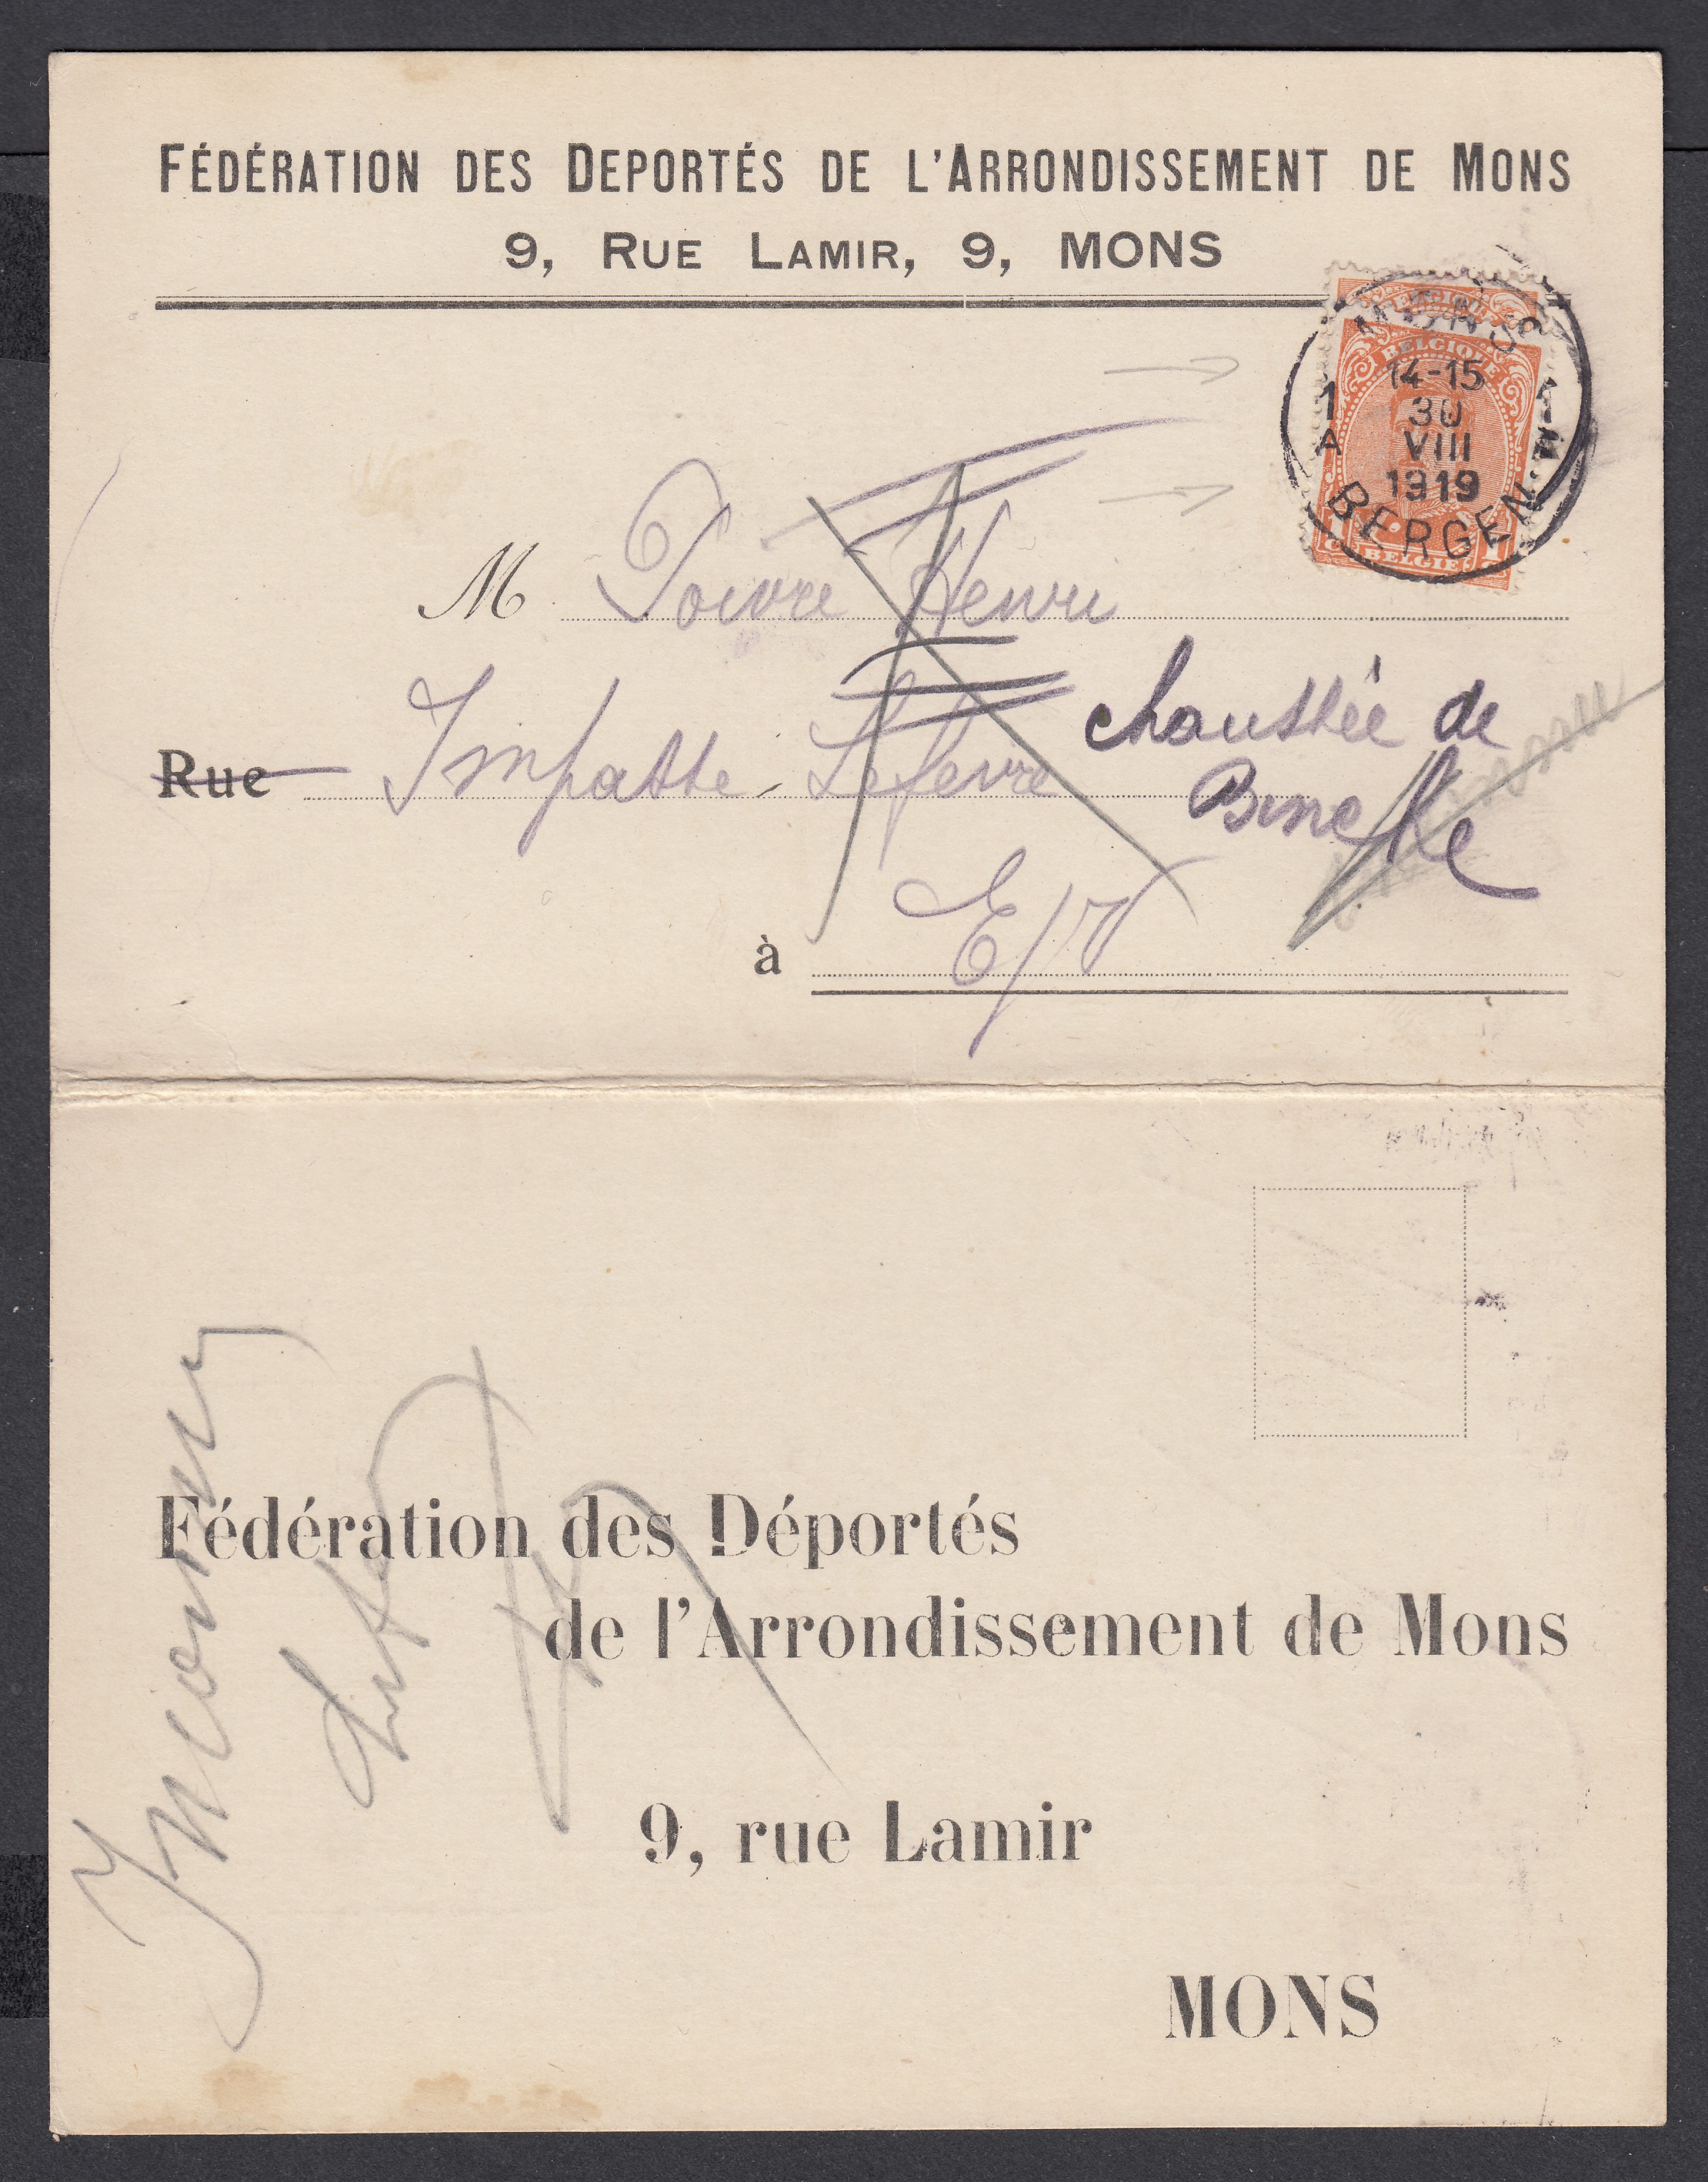 FÉDÉRATION DES DEPORTÉS DE L'ARRONDISSEMENT DE MONS
9, RUE LAMIR, 9, MONS
BELGIQUE
MONS
BELGIQUE
14-15
1 30
A VIII
1919
BERGEN
BELGIË
M Poivre Henri
Rue Impasse Lefevre chaussée de
Binche
à E/V
Inconnu
Fédération des Déportés
de l'Arrondissement de Mons
9, rue Lamir
MONS
Inconnu